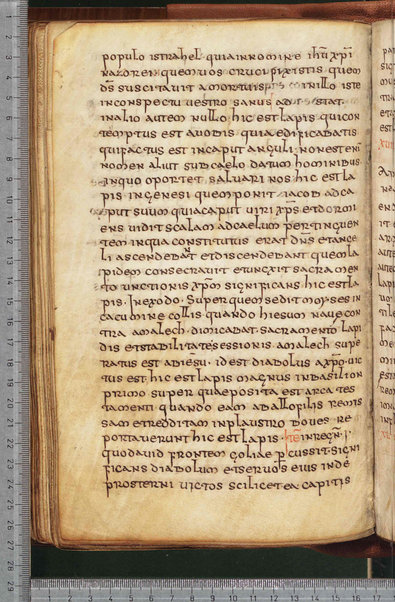 populo istrahel quia innomine ihu xpi
nazorei quemuos crucifixistis quem
ds suscitauit amortuis in illo iste
inconspectu uestro sanus adstat
inalio autem nullo hic est lapis quicon
temptus est auobis quia edificabatis
quifactus est incaput anguli nonest eni
nomen aliut subcaelo datum hominibus
inquo oportet saluari nos hic est la
pis ingenesi quem ponit iacob adca
put suum quiacaput uiri xps et dormi
ens uidit scalam adcaelum pertinguen
tem inqua constitutus erat dns et ange
li ascendebant et discendebant quem la
pidem consecrauit et unexit sacramen
to unctionis xpm significans hic est la
pis. Inexodo. Super quem sedit moyses in
cacumine collis quando hiesum naue con
tra amalech. dimicabat. sacramento lapi
dis et stabilitate sessionis amalech supe
ratus est abiesu. id est diabolus axpo. uic
tus est hic est lapis magnus inbasilion
primo super quae posita est arca tes
tamenti quando eam aballofilis remis
sam et redditam inplaustro boues re
portauerunt hic est lapis. Ite inregn. i
quodauid frontem goliae percussit. signi
ficans diabolum et seruos eius inde
prosterni uictos scilicet ea capitis